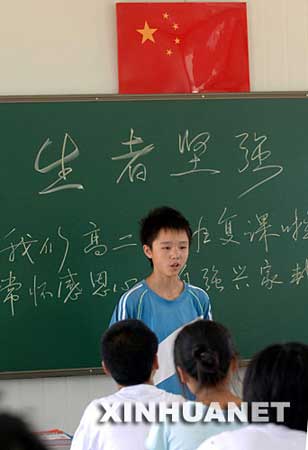 生者坚强
我们高二 班复课啦
常怀感恩心 强兴家
XINHUANET